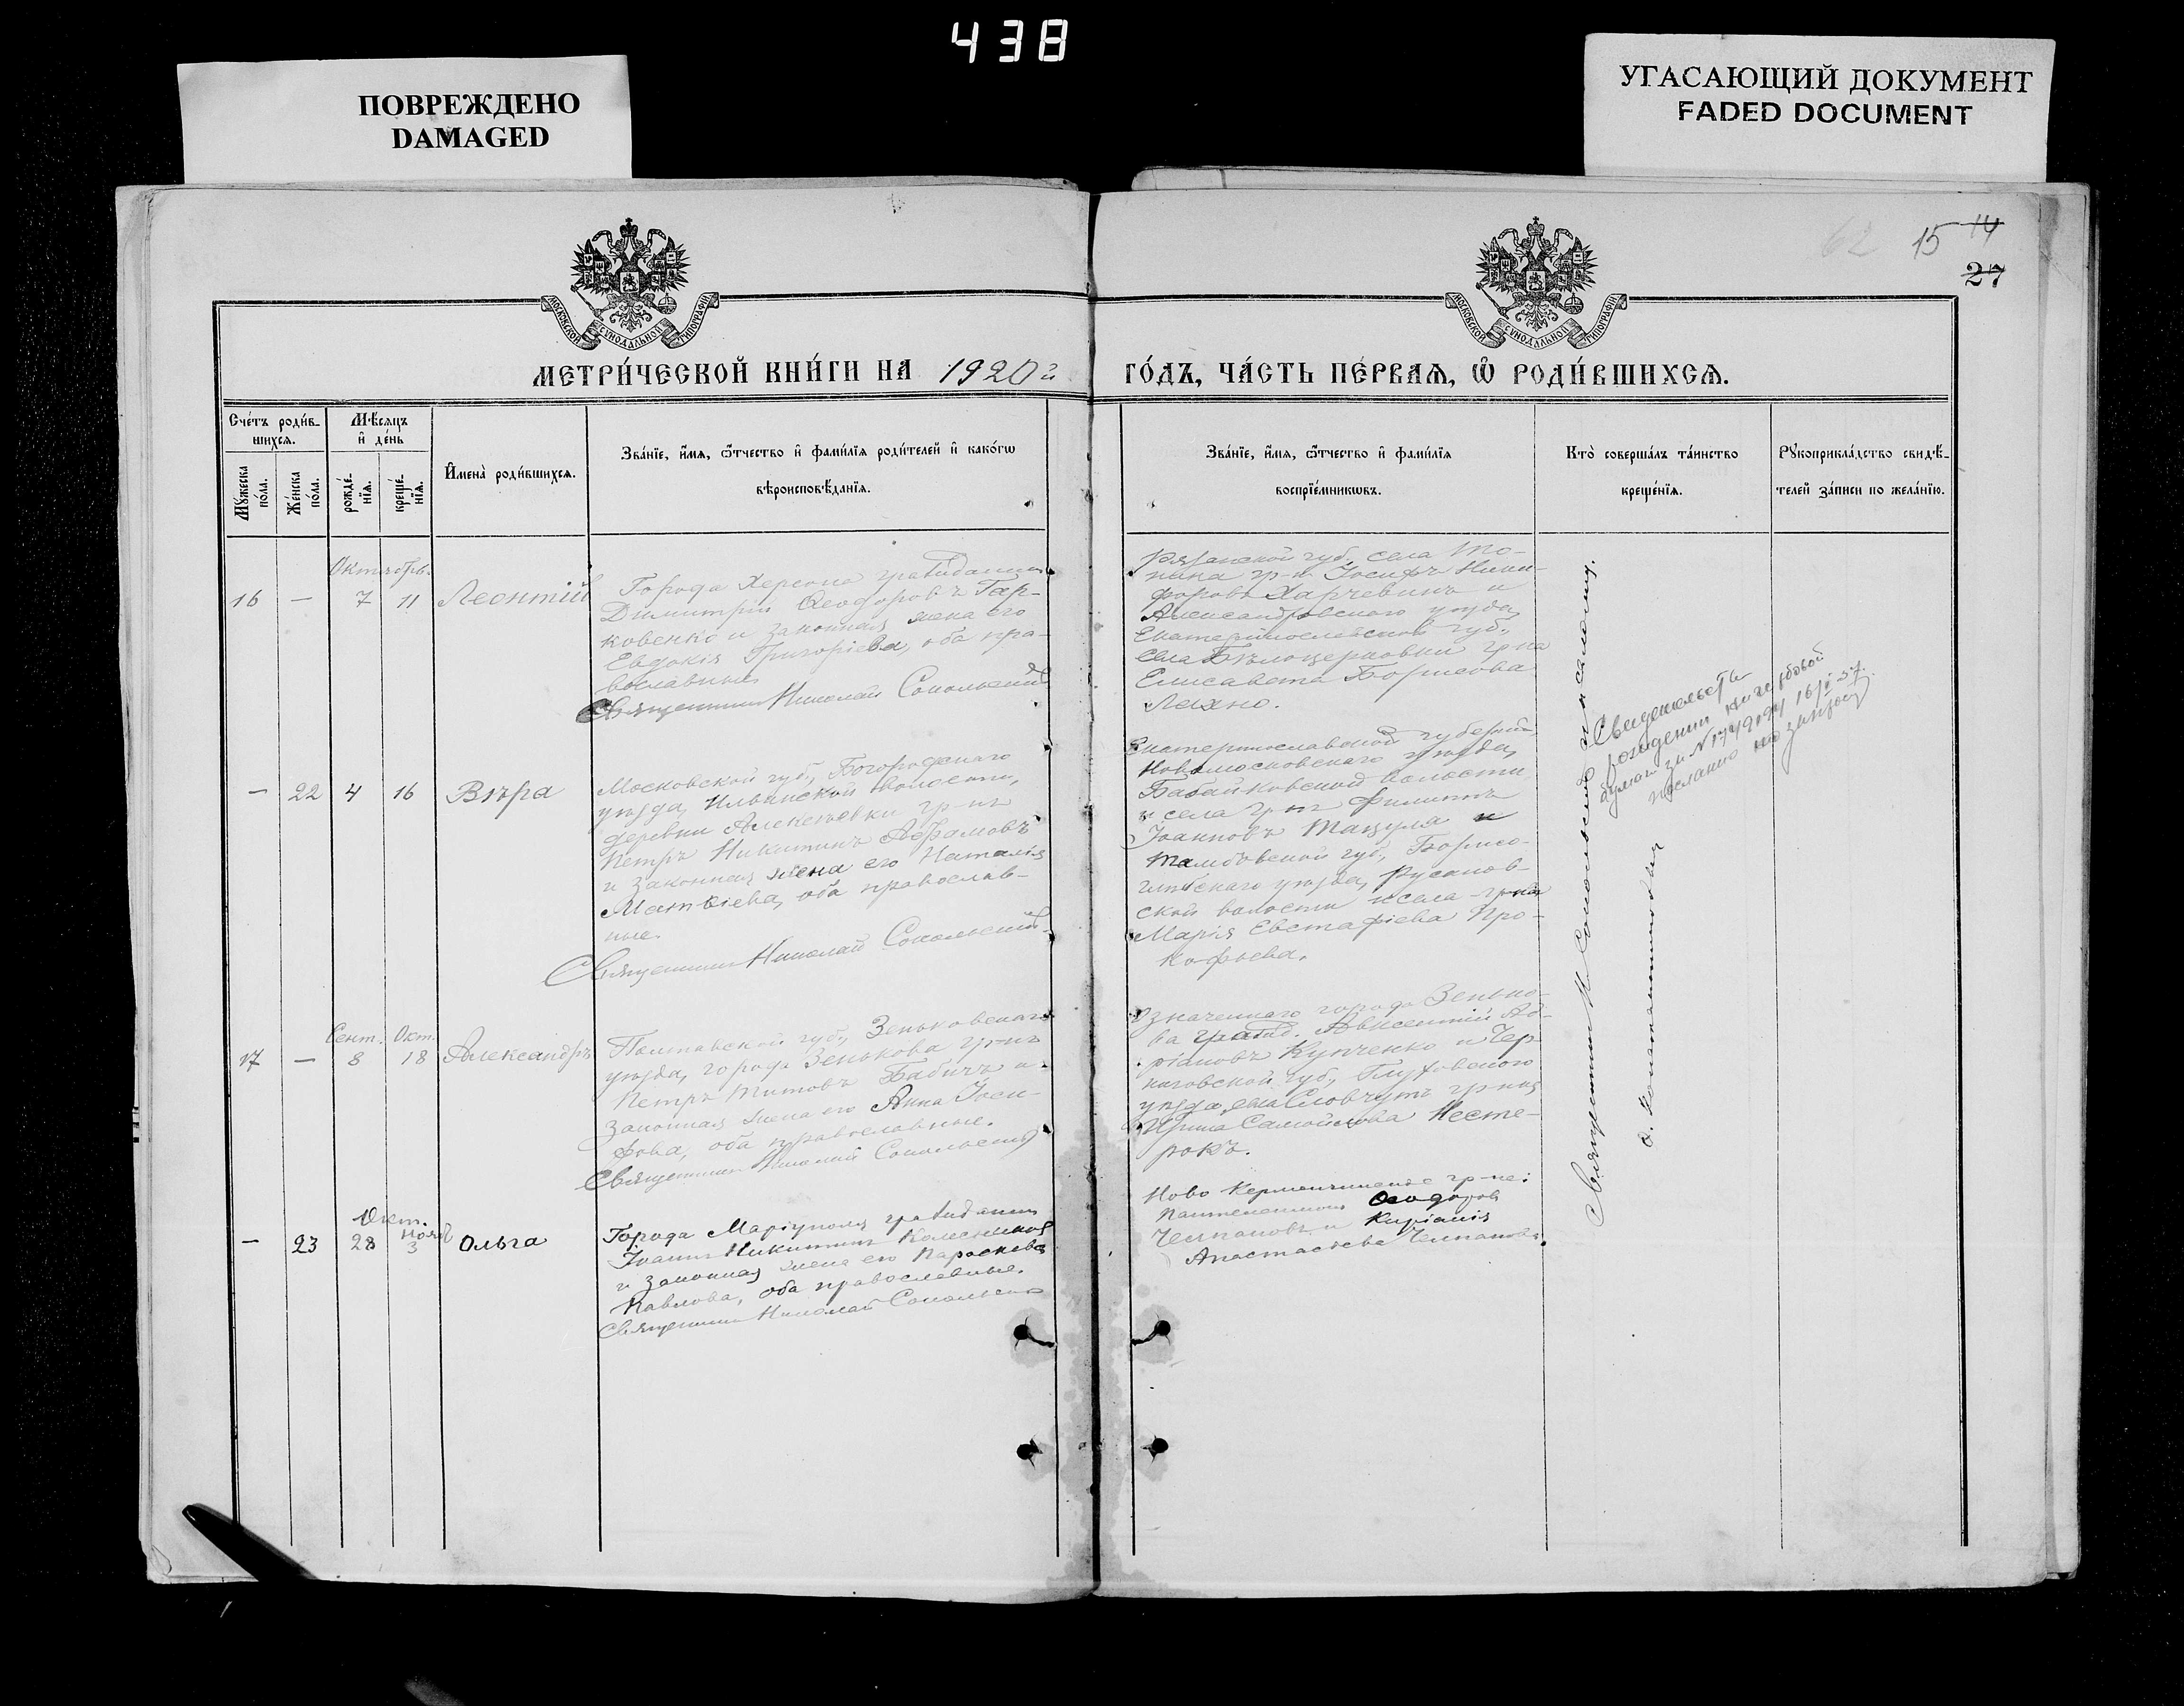 438
ПОВРЕЖДЕНО
DAMAGED
УГАСАЮЩИЙ ДОКУМЕНТ
FADED DOCUMENT
62 15 14
27
МОСКОВСКОЙ СѴНОДАЛЬНОЙ ТИПОГРАФІИ
МОСКОВСКОЙ СѴНОДАЛЬНОЙ ТИПОГРАФІИ
МЕТРИ́ЧЕСКОЙ КНИ́ГИ НА 1920 й
ГО́ДЪ, ЧА́СТЬ ПЕ́РВАѦ, Ѡ҆ РОДИ́ВШИХСѦ.
Сче́тъ роди́в-
шихсѧ.
Мꙋ́жеска по́ла.
Же́нска по́ла.
Мѣ́сѧцъ
и҆ де́нь
рожде́-
нїѧ.
креще́-
нїѧ.
И҆мена̀ роди́вшихсѧ.
Зва́нїе, и҆́мѧ, ѻ҆́тчество и҆ фами́лїѧ роди́телей и҆ како́гѡ
вѣроисповѣ́данїѧ.
Зва́нїе, и҆́мѧ, ѻ҆́тчество и҆ фами́лїѧ
воспрїе́мникѡвъ.
Кто̀ соверша́лъ та́инство
креще́нїѧ.
Рꙋкоприкла́дство свидѣ́-
телей за́писи по жела́нїю.
Октябрь.
16 — 7 11 Леонтій
Города Херсона гражданин
Димитрій Ѳеодоровъ Гар-
ковенко и законная жена его
Евдокія Григоріева, оба пра-
вославные.
Священник Николай Сокольскій
Рязанской губ., села То-
гр-н Іосифъ Ники-
форовъ Харчевинъ и
Александровскаго уѣзда,
Екатеринославской губ.,
села Бѣлоцерковки гр-ка
Елисавета Борисова
Лахно.
— 22 4 16 Вѣра
Московской губ., Богородскаго
уѣзда, Ильинской волости,
деревни Алексѣевки гр-нъ
Петръ Никитинъ Афамовъ
и законная жена его Наталія
Матвіева, оба православ-
ные.
Священник Николай Сокольскій
Екатеринославской губерніи,
Новомосковского уѣзда,
Бабайковской волости
и села гр-нъ Филиппъ
Іоанновъ Тацуля и
Тамбовской губ., Борисо-
глѣбскаго уѣзда, Русанов-
ской волости и села гр-ка
Марія Евстафіева Про-
кофьева.
Сент. Окт.
17 — 8 18 Александръ
Полтавской губ., Зеньковскаго
уѣзда, города Зенькова гр-нъ
Петръ Титовъ Бабичъ и
законная жена его Анна Іоси-
фова, оба православные.
Священник Николай Сокольскій
Означеннаго города Зенько-
ва гражд. Авксентій Ад-
ріановъ Купченко и Чер-
ниговской губ., Глуховского
уѣзда, села Словчутъ гр-ка
Ирина Самойлова Несте-
рокъ.
Окт. Нояб
— 23 28 3 Ольга
Города Маріуполя гражданин
Іоаннъ Никитинъ Колесников
и законная жена его Параскева
Павлова, оба православные.
Священник Николай Сокольскій
Ново Керменчикские гр-не:
Пантелеимон Ѳеодоров
Челпановъ и Киріакія
Анастасіева Челпанова.
Священник Н. Сокольскій и псаломщ.
Свидетельство
рождении